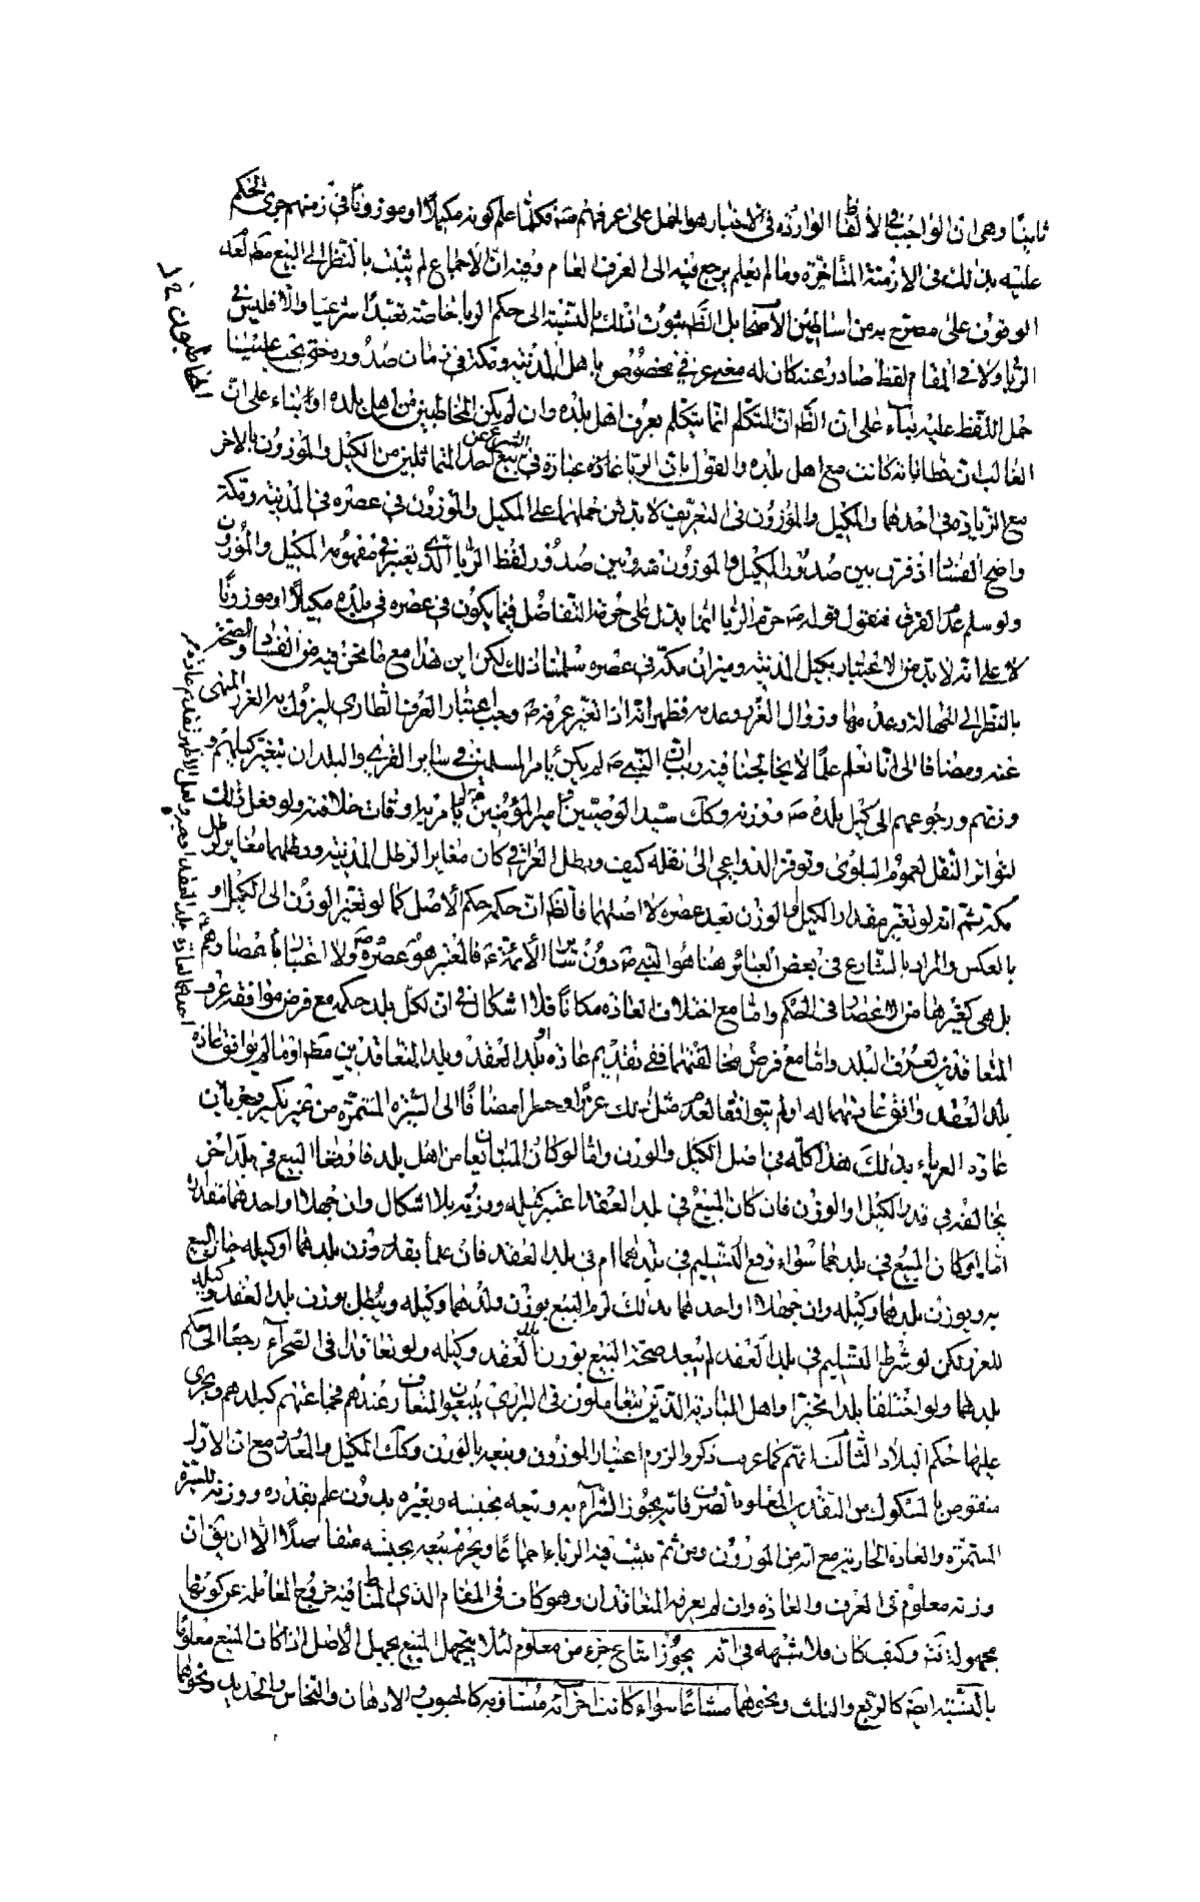 ثابتًا وهى ان الواجب فى الألفاظ الواردة فى الاخبار هو الحمل على عرفهم صه فكلما علم كونه مكيلًا او موزونًا فى زمنهم جرى الحكم
عليه بذلك فى الازمنة المتأخرة وما لم يعلم يرجع فيه الى العرف العام وفيه ان الاجماع لم يثبت بالنظر الى البيع مطه لعد
الوقوف على مصرح به من اساطين الأصحاب بل الظ ثبوت ذلك بالنسبة الى حكم الربا خاصة تعبدًا شرعيا والا فليس فى
الربا ولا فى المقام لفظ صادر عنه كان له معنى عرفى مخصوص باهل المدينة ومكة فى زمان صدوره حتى يجب علينا
حمل اللفظ عليه بناء على ان الظ ان المتكلم انما يتكلم بعرف اهل بلده وان لم يكن المخاطبين من اهل بلده او بناء على ان
الغالب ان خطاباته كانت مع اهل بلده والقول بان الربا عادة عبارة فى الشرع عن بيع احد المتماثلين من المكيل والموزون بالاخر
مع الزيادة فى احدهما والمكيل والموزون فى التعريف لا بد من حملهما على المكيل والموزون فى عصره فى المدينة ومكة
واضح الفساد اذ فرق بين صدور المكيل والموزون منه وبين صدور لفظ الربا الذى يعتبر فى مفهومه المكيل والموزون
ولو سلم عدم الفرق فنقول قوله صه حرم الربا انما يدل على حرمة التفاضل فيما يكون فى عصره فى بلده مكيلًا او موزونًا
لا على انه لا بد من الاعتبار بكيل المدينة وميزان مكة فى عصره سلمنا ذلك لكن اين هذا مع ما نحن فيه من الفساد والصحة
بالنظر الى الجهالة وعدمها وزوال الغرر وعدمه فظهر انه اذا تغير عرفه صه وجب اعتبار العرف الطارى ليزول به الغرر المنهى
عنه ومضافا الى انا نعلم علمًا لا يخالجنا فيه ريب ان النبى صه لم يكن يأمر المسلمين فى سائر القرى والبلدان بتغير كيلهم و
وزنهم ورجوعهم الى كيل بلده صه ووزنه وكك سيد الوصيين امير المؤمنين لم يأمر به اوقات خلافته ولو فعل ذلك
لتواتر النقل لعموم البلوى وتوفر الدواعى الى نقله كيف ورطل العراقى كان مغايرا لرطل المدينة ورطلهما مغاير لرطل
مكة ثم انه لو تغير مقدار الكيل والوزن بعد عصره لا اصلهما فالظ ان حكمه حكم الأصل كما لو تغير الوزن الى الكيل او
بالعكس والمراد بالشارع فى بعض العبائر هنا هو النبى صه دون سائر الأئمة ع فالمعتبر هو عصره صه ولا اعتبار بأعصارهم
بل هى كغيرها من الاعصار فى الحكم واما مع اختلاف العادة مكانًا فلا اشكال فى ان لكل بلد حكمه مع فرض موافقة عرف
المتعاقدين لعرف البلد واما مع فرض مخالفتهما ففى تقديم عادة بلد العقد او بلد المتعاقدين مطه او ما لم يوافق عادة
بلد العقد وافق عادتهما له او لم يتوافقا لعدم ذلك غررًا وخطرا مضافًا الى السيرة المستمرة من غير نكير وجريان
عادة الغرباء بذلك هذا كله فى اصل الكيل والوزن واما لو كان المتبايعان من اهل بلد فاوقعا البيع فى بلد اخر
يخالفه فى قدر الكيل او الوزن فان كان المبيع فى بلد العقد اعتبر كيله ووزنه بلا اشكال وان جهلا او احدهما مقداره
اما لو كان المبيع فى بلدهما سواء وقع التسليم فى بلدهما ام فى بلد العقد فان علما بقدر وزن بلدهما او كيله جاز البيع
به وبوزن بلدهما وكيله وان جهلا او احدهما بذلك لزم البيع بوزن بلدهما وكيله ويبطل بوزن بلد العقد وكيله
للغرر لكن لو شرط التسليم فى بلد العقد لم يبعد صحة البيع بوزن بلد العقد وكيله ولو تعاقدا فى الصحراء رجعا الى حكم
بلدهما ولو اختلفا بلدا تخيرا واهل البادية الذين يتعاملون فى البرارى يتبعون المتعارف عندهم فجماعتهم كبلدهم ويجرى
عليها حكم البلاد الثالث انهم كما عرفت ذكروا لزوم اعتبار الموزون وبيعه بالوزن وكك المكيل والمعدود مع ان الاول
منقوض بالمسكوك من النقدين المعلوم الصرف فانه يجوز الشراء به وبيعه بجنسه وبغيره بدون علم بقدره ووزنه للسيرة
المستمرة والعادة الجارية مع انه من الموزون ومن ثم يثبت فيه الربا اجماعًا ويحرم بيعه بجنسه متفاضلًا الا ان يق ان
وزنه معلوم فى العرف والعادة وان لم يعرفه المتعاقدان وهو كاف فى المقام الذى المناط فيه خروج المعاملة عن كونها
مجهولة فتد وكيف كان فلا شبهة فى انه يجوز ابتياع جزء من معلوم لئلا يتجهل المبيع بجهل الأصل اذا كان المبيع معلومًا
بالنسبة ايضه كالربع والثلث ونحوهما مشاعًا سواء كانت اجزائه متساوية كالحبوب والادهان والنحاس والحديد ونحوهما